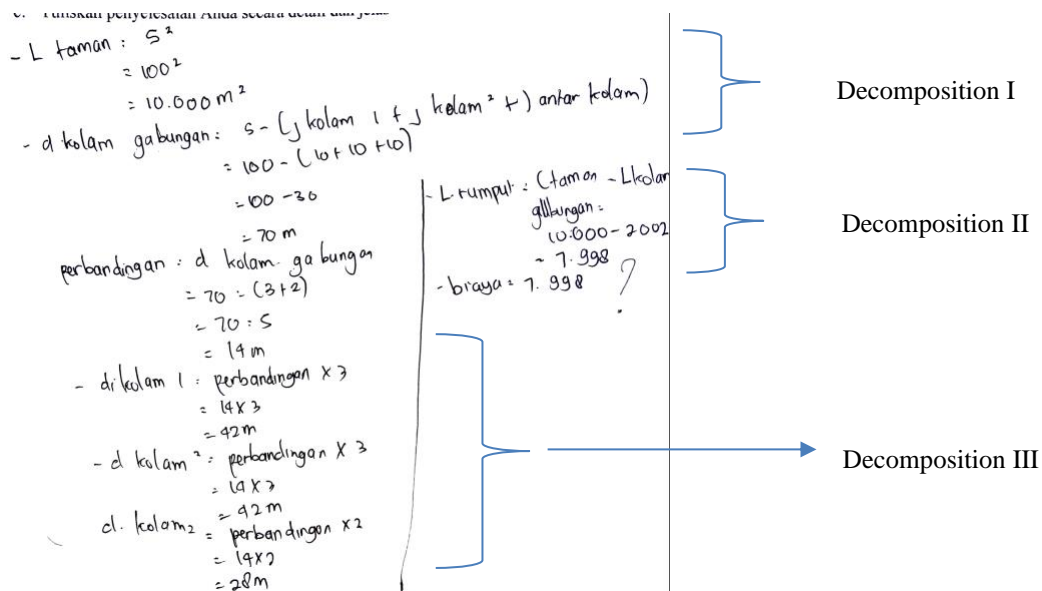 c. Tuliskan penyelesaian Anda secara detail dan jelas
- L taman : S²
= 100²
= 10.000 m²
- d kolam gabungan : s - (j kolam 1 + j kolam ² + j antar kolam)
= 100 - (10 + 10 + 10)
= 100 - 30
= 70 m
perbandingan : d kolam gabungan
= 70 : (3+2)
= 70 : 5
= 14 m
- di kolam 1 : perbandingan x 3
= 14 x 3
= 42 m
- d kolam ² : perbandingan x 3
= 14 x 3
= 42 m
d. kolam 2 = perbandingan x 2
= 14 x 2
= 28 m
- L. rumput : L taman - L kolam
gabungan =
10.000 - 2002
= 7.998
- biaya = 7.998 ?
Decomposition I
Decomposition II
Decomposition III